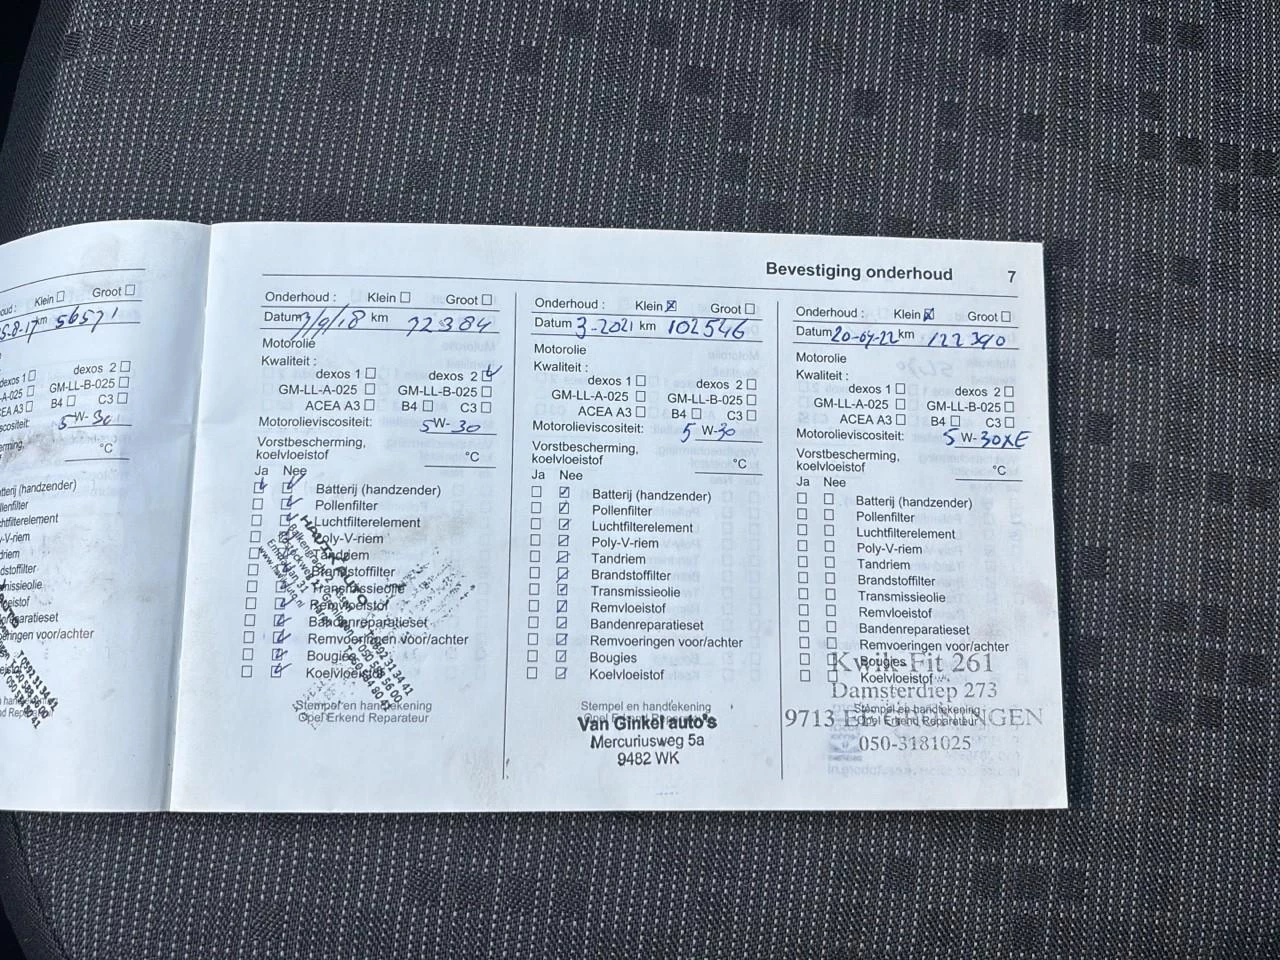 Klein Groot
56571
dexos 1 dexos 2
GM-LL-B-025
B4 C3
5 W-30
°C
(handzender)
voor/achter
Bevestiging onderhoud 7
Onderhoud : Klein Groot
Datum 3/9/18 km 72384
Motorolie
Kwaliteit :
dexos 1 dexos 2
GM-LL-A-025 GM-LL-B-025
ACEA A3 B4 C3
Motorolieviscositeit: 5 W-30
Vorstbescherming,
koelvloeistof °C
Ja Nee
Batterij (handzender)
Pollenfilter
Luchtfilterelement
Poly-V-riem
Tandriem
Brandstoffilter
Transmissieolie
Remvloeistof
Bandenreparatieset
Remvoeringen voor/achter
Bougies
Koelvloeistof
Stempel en handtekening
Opel Erkend Reparateur
Onderhoud : Klein Groot
Datum 3-2021 km 102546
Motorolie
Kwaliteit :
dexos 1 dexos 2
GM-LL-A-025 GM-LL-B-025
ACEA A3 B4 C3
Motorolieviscositeit: 5 W-30
Vorstbescherming,
koelvloeistof °C
Ja Nee
Batterij (handzender)
Pollenfilter
Luchtfilterelement
Poly-V-riem
Tandriem
Brandstoffilter
Transmissieolie
Remvloeistof
Bandenreparatieset
Remvoeringen voor/achter
Bougies
Koelvloeistof
Stempel en handtekening
Opel Erkend Reparateur
Van Ginkel auto's
Mercuriusweg 5a
9482 WK
Onderhoud : Klein Groot
Datum 20-04-22 km 122390
Motorolie
Kwaliteit :
dexos 1 dexos 2
GM-LL-A-025 GM-LL-B-025
ACEA A3 B4 C3
Motorolieviscositeit: 5 W-30XE
Vorstbescherming,
koelvloeistof °C
Ja Nee
Batterij (handzender)
Pollenfilter
Luchtfilterelement
Poly-V-riem
Tandriem
Brandstoffilter
Transmissieolie
Remvloeistof
Bandenreparatieset
Remvoeringen voor/achter
Bougies
Koelvloeistof
Stempel en handtekening
Opel Erkend Reparateur
Kwik-Fit 261
Damsterdiep 273
9713
050-3181025